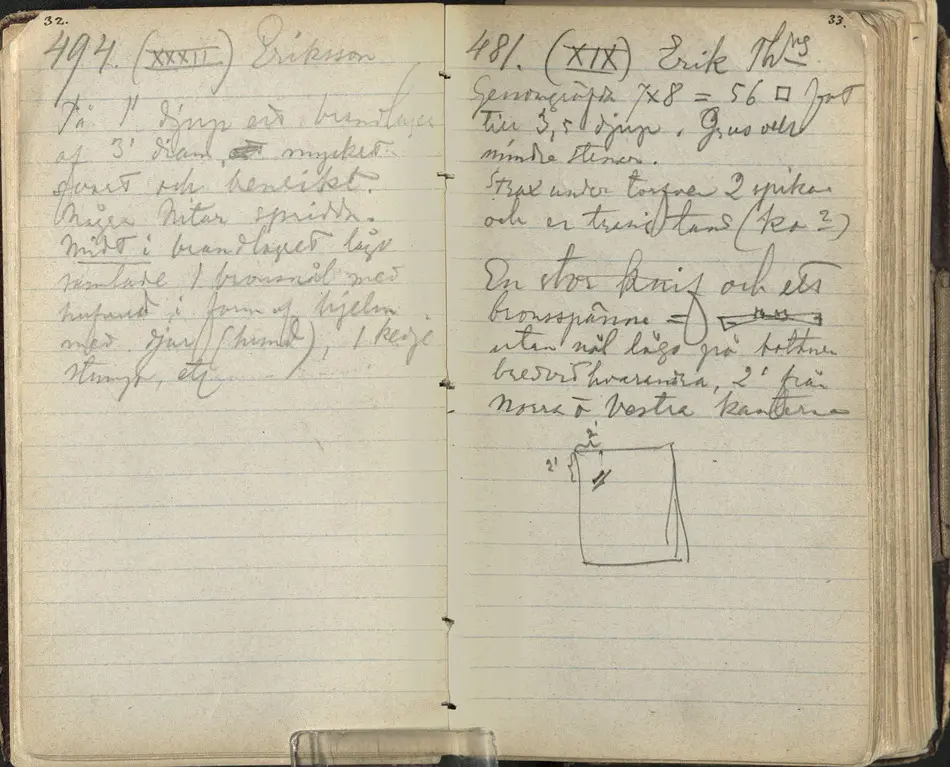 32.
494. (XXXII) Eriksson
På 1' djup ett brandlager
af 3' diam, mycket
svart och benrikt.
Några Nitar spridda.
Midt i brandlagret lågo
samlade 1 bronsnål med
hufvud i form af hjelm
med djur (hund), 1 kedje
etc
33.
481. (XIX) Erik Thng
Genomgräfda 7x8 = 56 □ fot
till 3,5 djup. Grus och
mindre stenar.
Strax under torfven 2 spikar
och en tand (ko?)
En stor knif och ett
bronsspänne =
utan nål lågo på bottnen
bredvid hvarandra, 2' från
Norra o Vestra kanterna
2'
2'